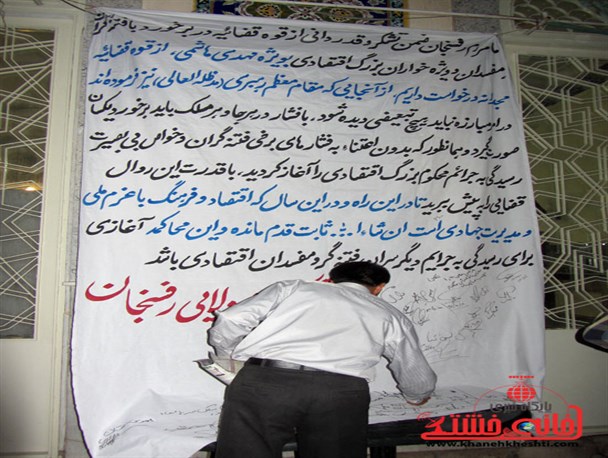 ما مردم رفسنجان ضمن تشکر و قدردانی از قوه قضائیه در برخورد با فتنه گران
مفسدان و ویژه خواران بزرگ اقتصادی بویژه مهدی هاشمی، از قوه قضائیه
مجدانه درخواست داریم، از آنجایی که مقام معظم رهبری (مدظله العالی) نیز فرموده اند
در امر مبارزه نباید هیچ تبعیضی دیده شود. با فساد در هر جا و هر مسلک باید برخورد یکسان
صورت گیرد و همانطور که بدون اعتناء به رفتارهای برخی فتنه گران و خواص بی بصیرت
رسیدگی به جرائم محکوم بزرگ اقتصادی را آغاز کردید، با قدرت این روال
قضایی را پیش ببرید تا در این راه و در این سال که اقتصاد و فرهنگ با عزم ملی
و مدیریت جهادی است ان شاء ا... ثابت قدم مانده و این محاکمه آغازی
برای رسیدگی به جرایم دیگر سران فتنه گر و مفسدان اقتصادی باشد
ولایی رفسنجان
پایگاه خبری
خانه خشتی
www.khanehkheshti.com